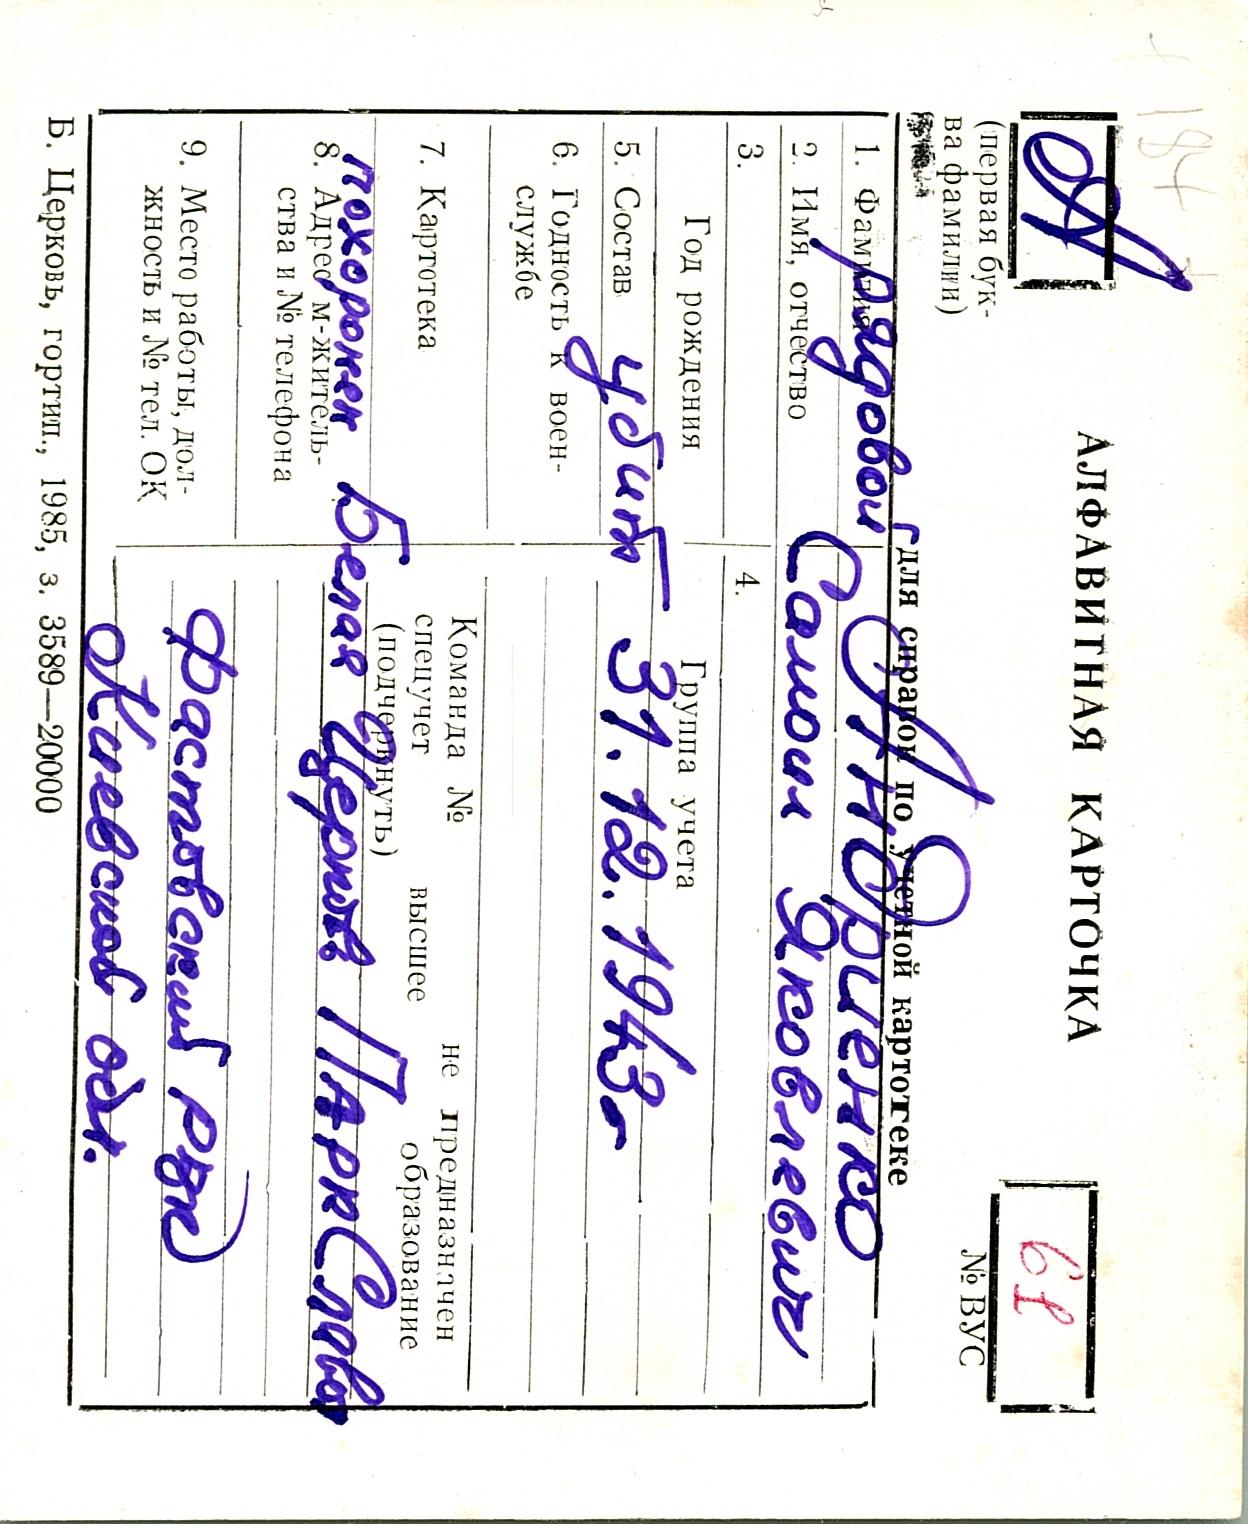 184
А
(первая бук-
ва фамилии)
АЛФАВИТНАЯ КАРТОЧКА
для справок по учетной картотеке
61
№ ВУС
1. Фамилия
рядовой Андриенко
2. Имя, отчество
Самоил Яковлевич
3.
4.
Год рождения
Группа учета
5. Состав
убит 31.12.1943-
6. Годность к воен-
службе
7. Картотека
Команда №
не предназначен
спецучет высшее образование
(подчеркнуть)
похоронен Белая Церковь Парк Славы
8. Адрес м-житель-
ства и № телефона
9. Место работы, дол-
жность и № тел. ОК
Фастовский РВК
Киевской обл.
Б. Церковь, гортип., 1985, з. 3589—20000